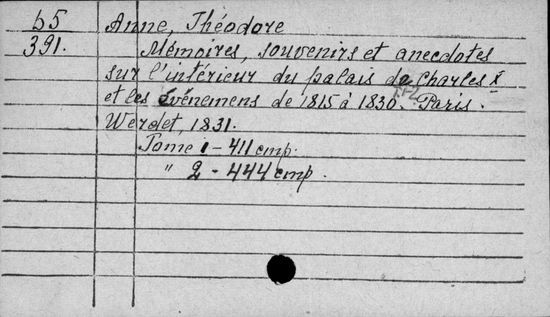 b5 Anne, Théodore
391. Mémoires, souvenirs et anecdotes
sur l'intérieur du palais de Charles X
et les événemens de 1815 à 1830. Paris.
Werdet, 1831.
Tome 1 - 411 cmp.
" 2 - 444 cmp.